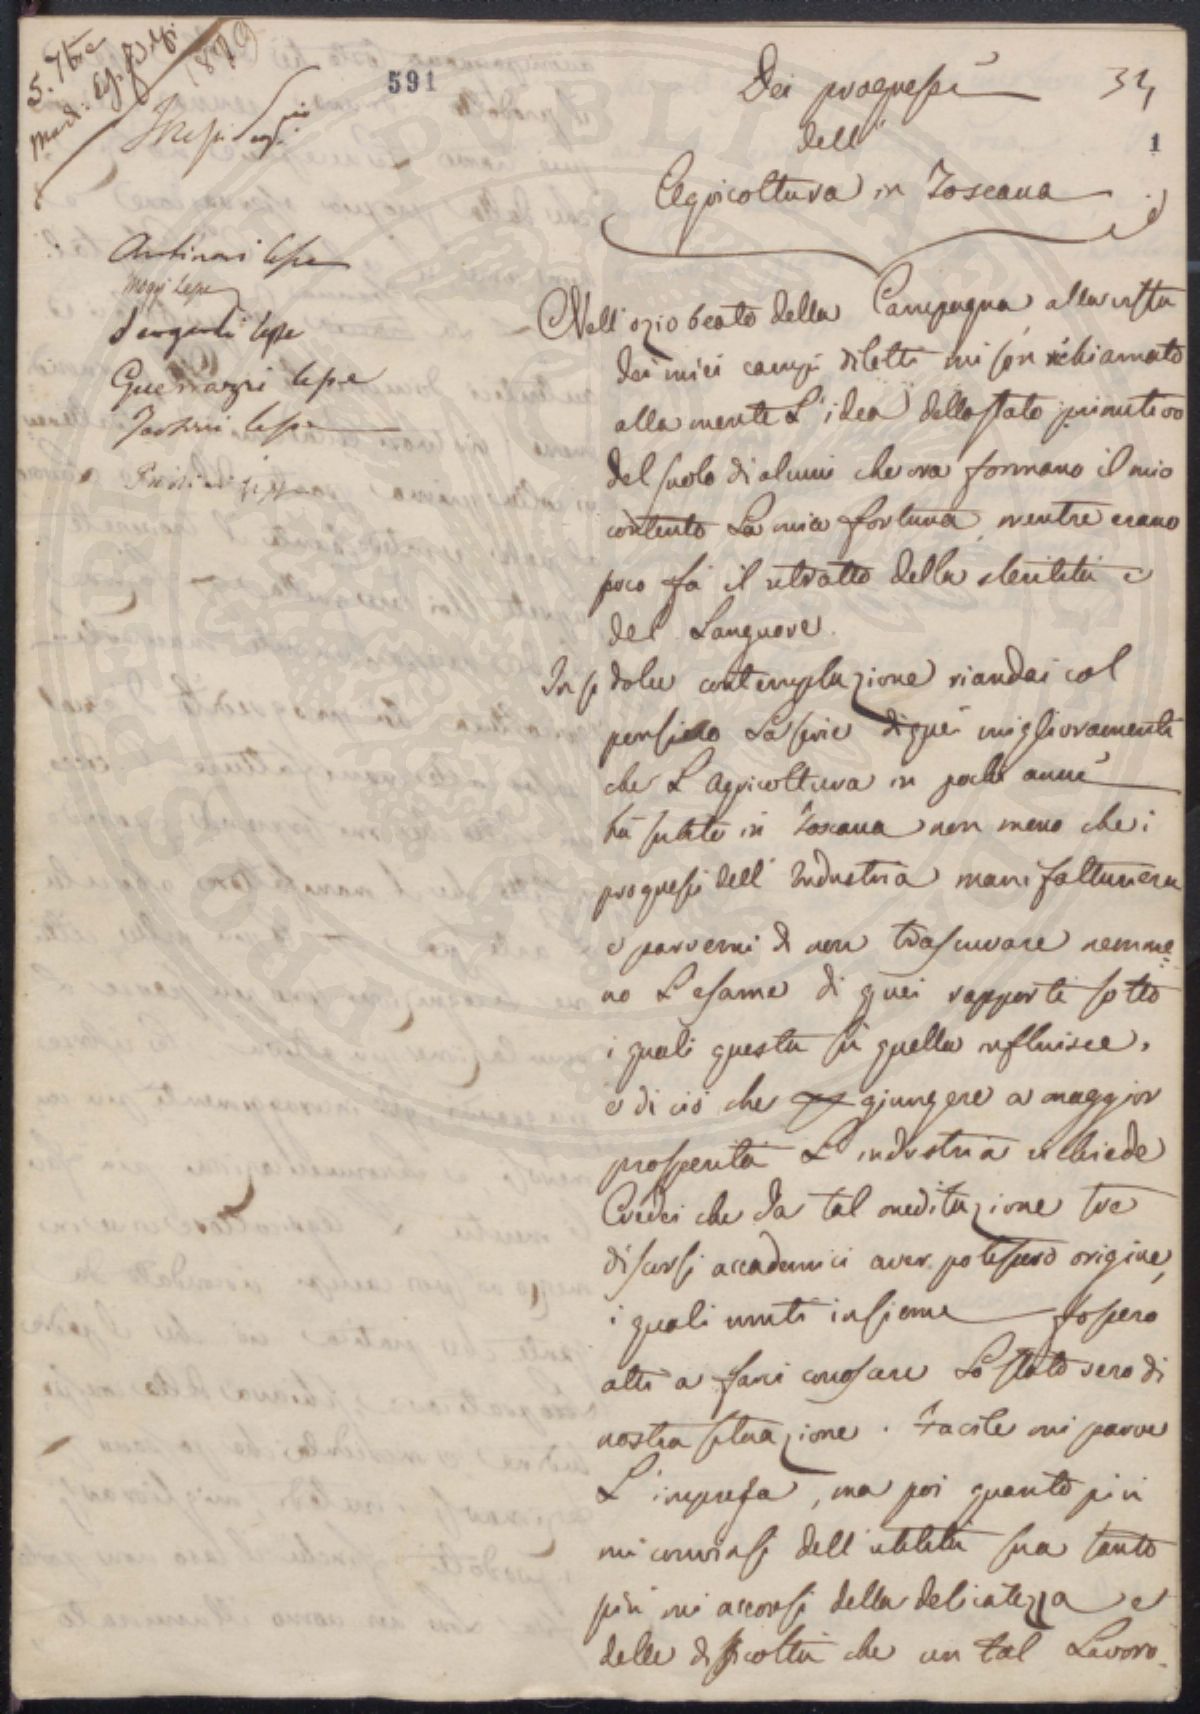 5. 7bre
1829
591
34
1
Dei progressi
dell'
Agricoltura in Toscana
Antinori lesse
Magi lesse
Sergardi lesse
Guerrazzi lesse
lesse
Nell'ozio beato della Campagna alla vista
dei miei campi diletti mi son richiamato
alla mente L'idea dello stato primitivo
del suolo di alcuni che ora formano il mio
contento La mia fortuna, mentre erano
poco fà il ritratto della sterilità e
del Languore.
In sì dolce contemplazione riandai col
pensiero La serie di quei miglioramenti
che L'Agricoltura in pochi anni
hà subiti in Toscana non meno che i
progressi dell'Industria manifatturiera
e parvemi di non trascurare nemme=
no L'esame di quei rapporti sotto
i quali questa sù quella influisce,
e di ciò che giungere a maggior
prosperità L'industria richiede
Credei che da tal meditazione tre
discorsi accademici aver potessero origine,
i quali uniti insieme fossero
atti a farci conoscere Lo stato vero di
nostra situazione. Facile mi parve
L'impresa, ma poi quanto più
mi convinsi dell'utilità sua tanto
più mi accorsi della delicatezza e
delle difficoltà che un tal Lavoro